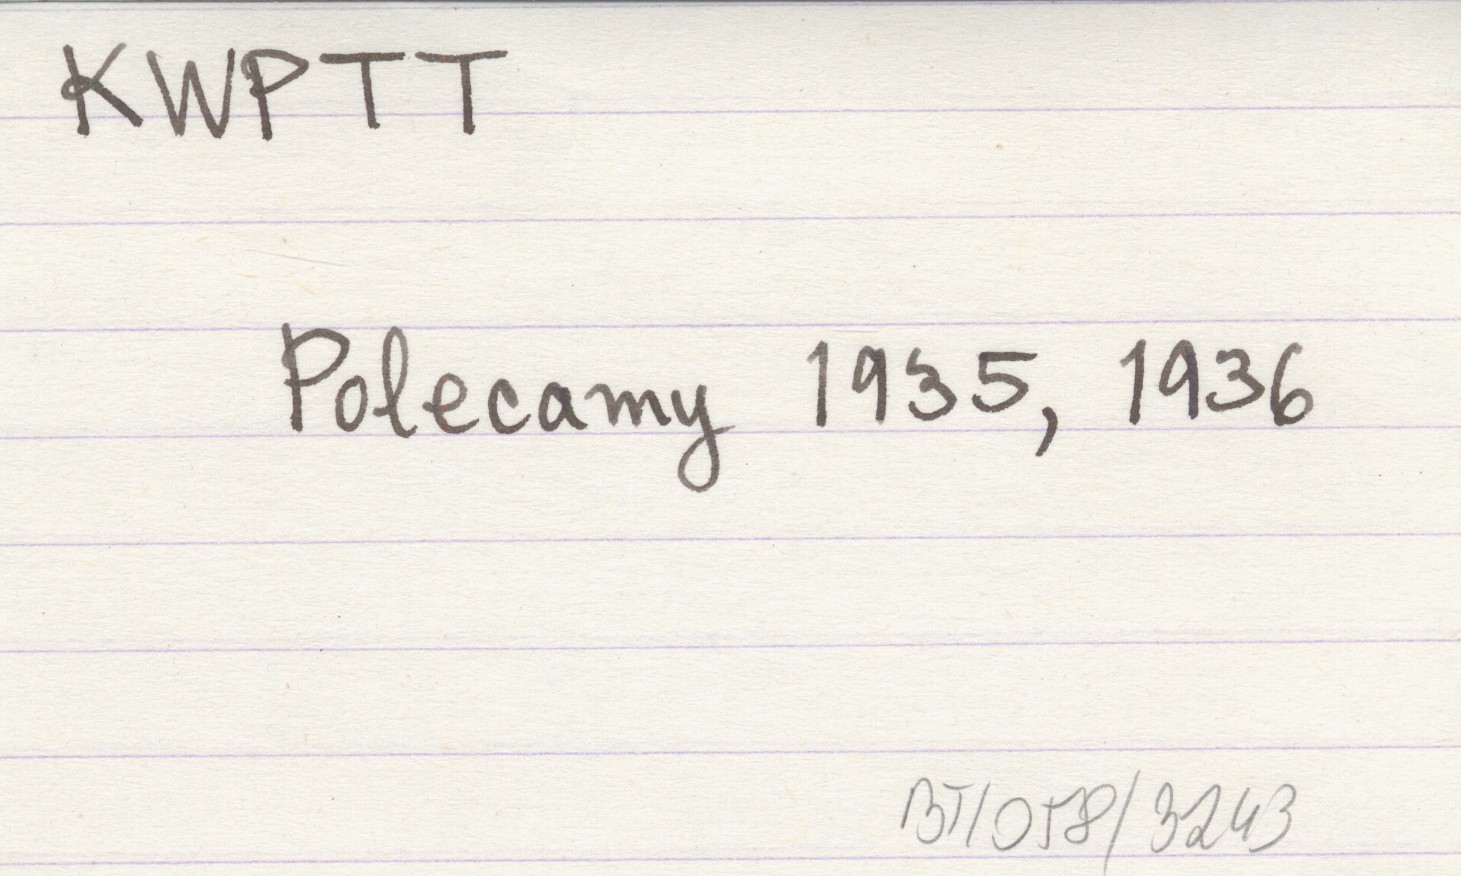 KWPTT
Polecamy 1935, 1936
BT/058/3243